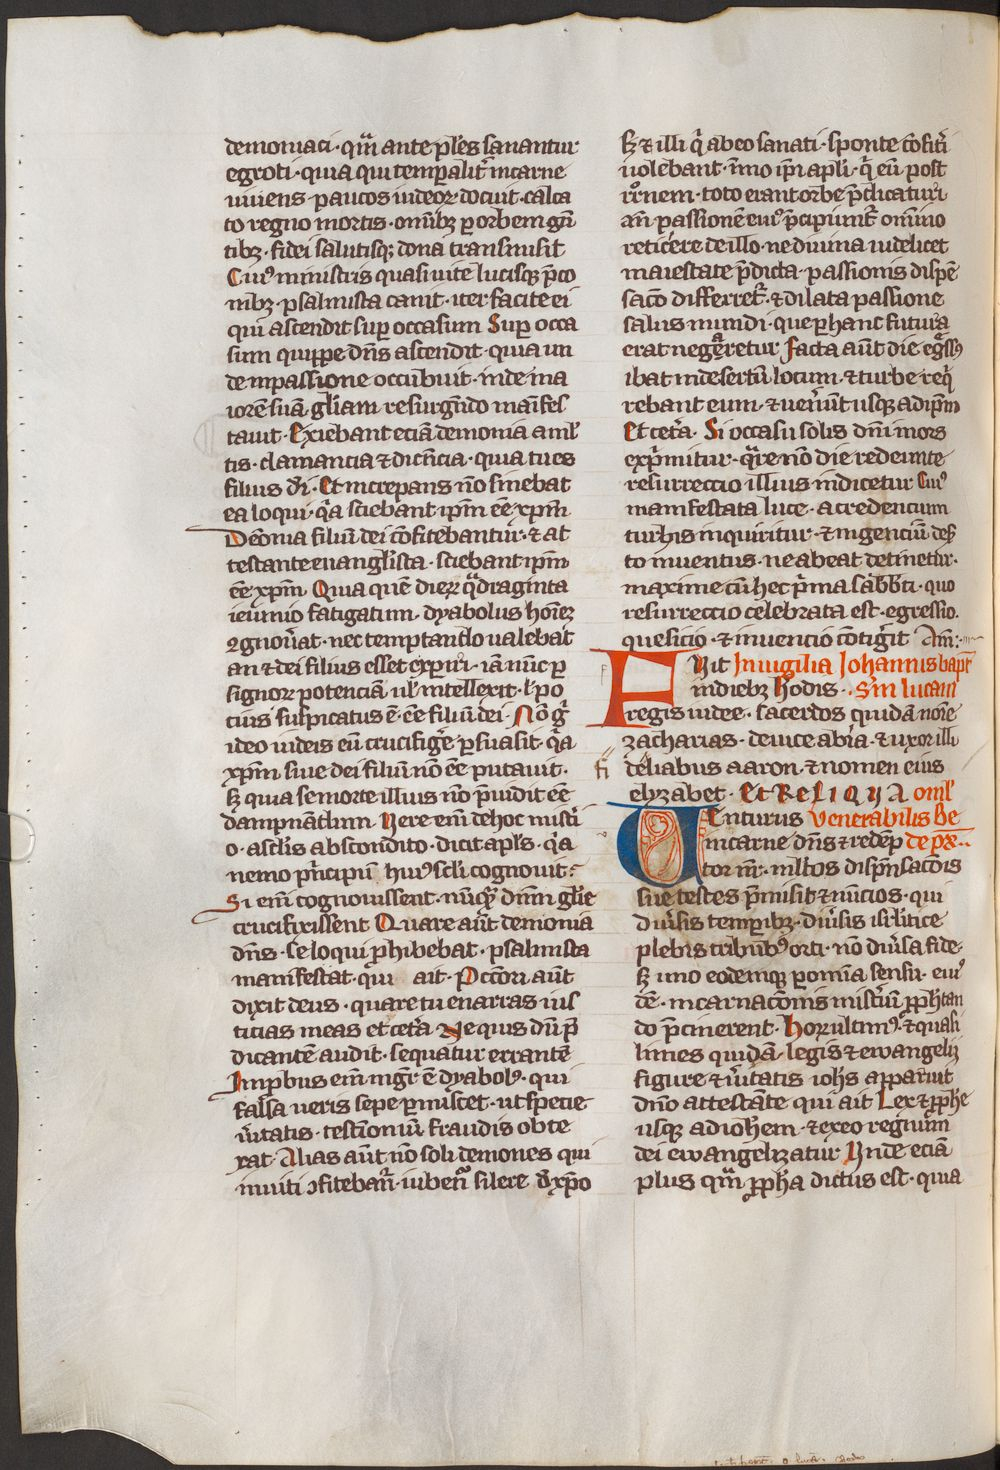 demoniaci · qm̄ ante pl̄es sanantur
egroti · quia qui temp̄alit̄ in carne
uiuens · paucos iudeoꝝ docuit · calca
to regno mortis · om̄ibꝫ ꝑ orbem gn̄
tibꝫ · fidei salutisqꝫ dona transmisit
Cuiꝰ ministris quasi uite lucisqꝫ p̄co
nibꝫ · psalmista canit · iter facite ei
qui ascendit suꝑ occasum Suꝑ occa
sum quippe dn̄s ascendit · quia un
de in passione occubuit · inde ma
iorē suā gl̄iam resurgn̄do manifes
tauit · Exiebant eciā demonia a ml̓
tis · clamancia ⁊ dicn̄cia · quia tu es
filius dı̄ · Et increpans nō sinebat
ea loqui · qͥa sciebant ip̄m ēē xp̄m
Demōia filiū dei cōfitebantur · ⁊ at
testante euangl̄ista · sciebant ip̄m
ēē xp̄m · Quia quē dieꝝ qͣdraginta
ieiunio fatigatum · dyabolus hoīeꝫ
ꝯgnoūat · nec temptando ualebat
an ⁊ dei filius esset exꝑiri · iā nūc ꝑ
signoꝝ potenciā ul̓ intellexit · l̓ po
cius suspicatus ē · ēē filiū dei · Nō gͦ
ideo iudeis eū crucifigē ꝑsuasit · qͥa
xp̄m siue dei filiū nō ēē putauit ·
Sꝫ quia se morte illius nō p̄uidit ēē
dampnādum · Uere eni de hoc mist̄i
o · a sc̄lis abscondito · dicit apl̄s · qͥa
nemo pͥncipum huiꝰ sc̄li cognouit ·
Si eni cognouissent · nūqͣꝫ dn̄m gl̄ie
crucifixissent Quare aūt demonia
dn̄s · se loqui ꝓhibebat · psalmista
manifestat · qui ait · Pctori aūt
dixit deus · quare tu enarras ius
ticias meas et cetā Ne quis dū p̄
dicantē audit · sequatur errantē
Inp̄bus eni mgr̄ ē dyabolꝰ · qui
falsa ueris sepe ꝑmiscet · ut specie
ūitatis · testimoniū fraudis obte
xat · Alias aūt nō soli demones qui
inuiti ꝯfitebant̄ · iubent̄ silere d̄ xp̄o
Sꝫ ⁊ illi qͥ ab eo sanati · sponte cōfitˀi
uolebant · īmo ip̄i apl̄i · qͥ eū post
rōnem · toto erant orbe p̄dicaturi
an̄ passionē eiuꝰ p̄cipiunt̄ om̄ino
reticere de illo · ne diuina uidelicet
maiestate p̄dicta · passionis dispē
sacō differret̄ · ⁊ dilata passione
salus mundi · que ꝑ hanc futura
erat negaretur Facta aūt die egͣssꝰ
ibat in desertū locum · ⁊ turbe reqͥ
rebant eum · ⁊ uenūt usqꝫ ad ip̄m
Et cetā · Si occasu solis dn̄i mors
expͥmitur · qͣre nō die redeunte
resurreccio illius indicetur Cuiꝰ
manifestata luce · a credencium
turbis inquiritur · ⁊ in genciū deß
to inuentus · ne abeat detinetur ·
maxime cū hec pͥma sabb̄i · quo
resurreccio celebrata est · egressio ·
quesicio · ⁊ inuencio cōtigͥt Am̄ :·
FUit In uigilia Iohannis bapt̄
in diebꝫ Hodis · S'm lucam
regis iudee · sacerdos quidā noīe
zacharias · de uice abia · ⁊ uxor illi
de filiabus aaron · ⁊ nomen eius
elyzabet · Et ReLIQUA oml̓
UEnturus Venerabilis Be
in carne dn̄s ⁊ redēp de px ··
tor nr̄ · ml̓tos dispēsac̄onis
sue testes p̄misit ⁊ nūcios · qui
diūsis temꝑibꝫ · diūsis isr̄litice
plebis tribubꝰ orti · nō diūsa fide ·
Sꝫ uno eodemqꝫ ꝑ om̄ia sensu · eiuꝰ
dē · incarnac̄onis mist̄iū ꝓph̄tan
do p̄cinerent · Hoꝝ ultimꝰ · ⁊ quasi
limes quidā · legis ⁊ ewangelij
figure ⁊ ūitatis ioh̄s apparuit
dn̄o attestāte qui ait Lex ⁊ ꝓph̄e
usqꝫ ad ioh̄em · ⁊ ex eo regnum
dei ewangelizatur Unde eciā
plus qm̄ ꝓph̄a dictus est · quia